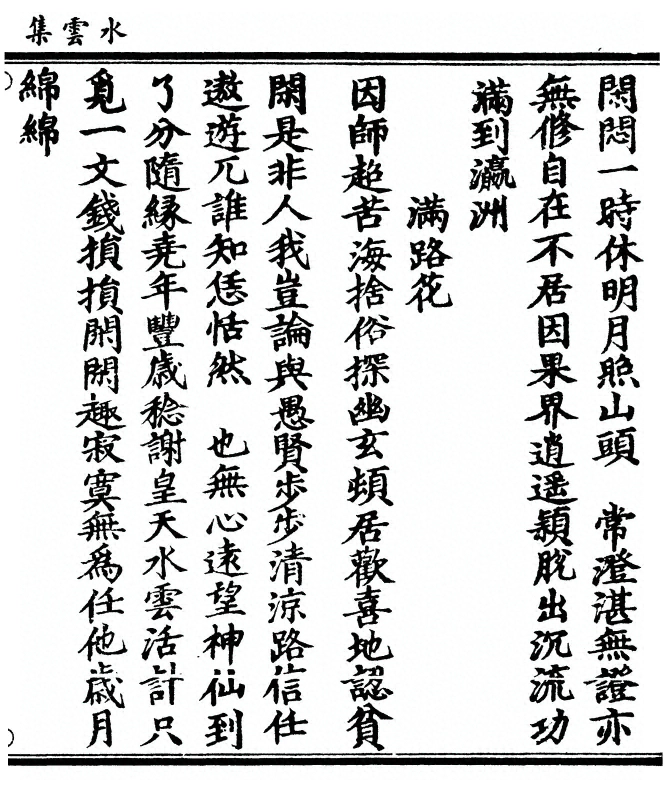 水雲集
閑悶一時休明月照山頭　常澄湛無證亦
無修自在不居因果界逍遥穎脫出沉流功
滿到瀛洲
滿路花
因師超苦海捨俗探幽玄頻居歡喜地認貧
閑是非人我豈論與愚賢步步清涼路信任
遨遊兀誰知恁恬然　也無心遠望神仙到
了分隨緣堯年豐歲稔謝皇天水雲活計只
覓一文錢揁揁閑閑趣寂寞無為任他歲月
綿綿